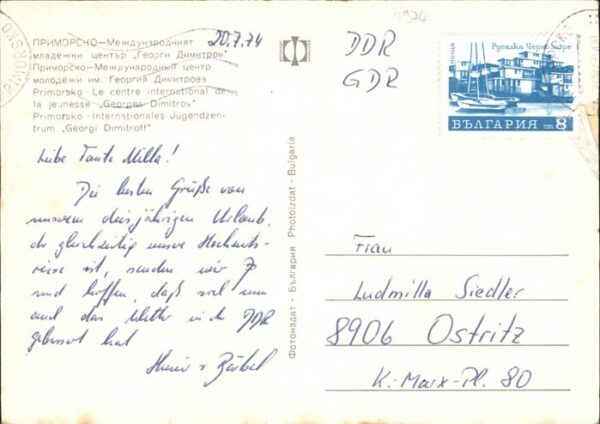 ПРИМОРСКО—Международният
младежки център „Георги Димитров"
Приморско—Международный центр
молодежи им. Георгия Димитрова
Primorsko—Le centre international de
la jeunesse „Georges Dimitrov"
Primorsko—Internationales Jugendzen-
trum „Georgi Dimitroff"
20.7.74
Liebe Tante Milla!
Die besten Grüße von
unserem diesjährigen Urlaub,
der gleichzeitig unsere Hochzeits-
reise ist, senden wir
und hoffen, daß sich nun
auch das Wetter in der DDR
gebessert hat
Bärbel
Фотоиздат - България Photoizdat - Bulgaria
1974
DDR
GDR
БЪЛГАРИЯ 8
Frau
Ludmilla Siedler
8906 Ostritz
K.-Marx-Pl. 80